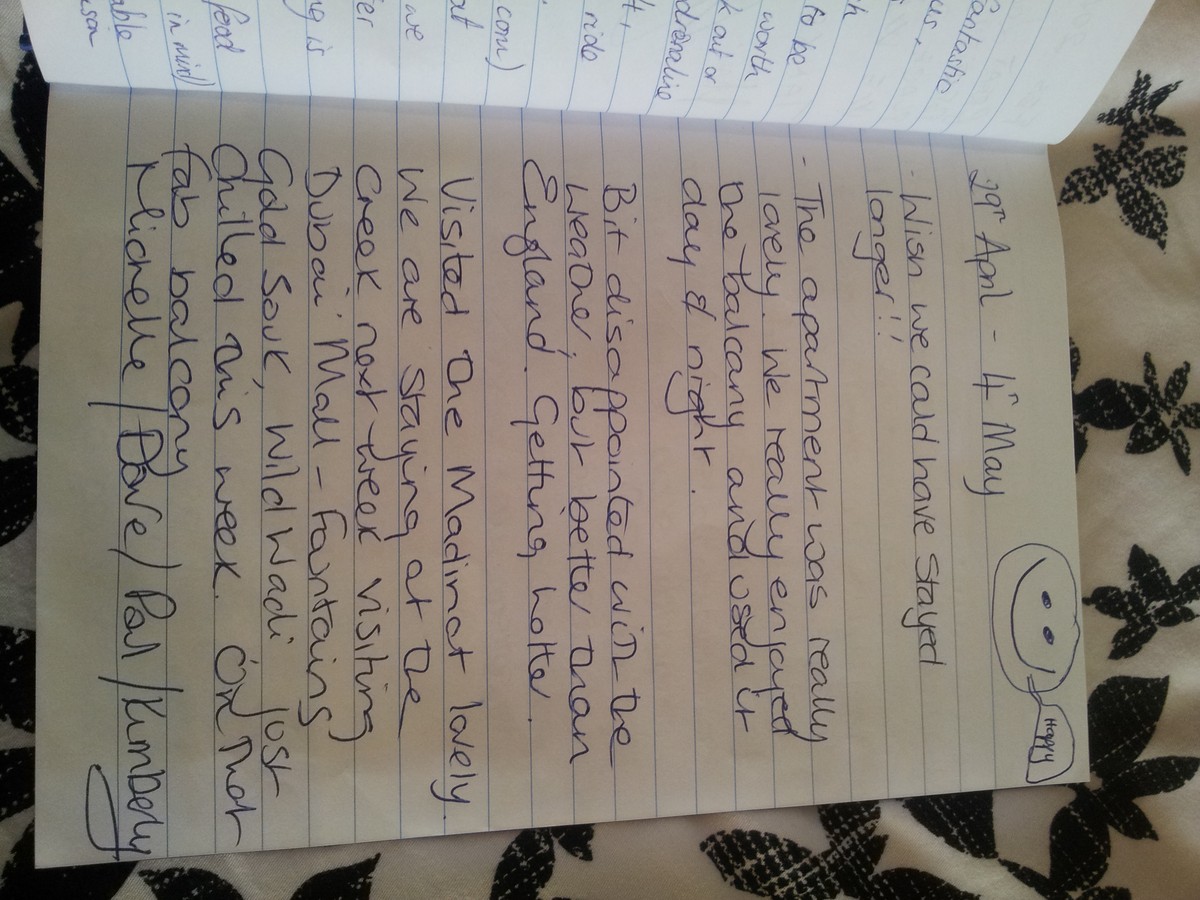 fantastic
us,
to be
worth
k out or
adrenalin
ride
com)
at
we
er
ng is
feed
in mind)
able
ason
29th April - 4th May
Happy
- Wish we could have stayed
longer!!
- The apartment was really
lovely. We really enjoyed
the balcany and used it
day & night.
Bit disappointed with the
weather, but better than
England. Getting hotter.
Visited the Madinat lovely.
We are staying at the
Creek next week visiting
Dubai Mall - Fountains
Gold Souk, Wild Wadi just
Chilled this week. On that
fab balcony
Michelle / Dave / Paul / Kimberly